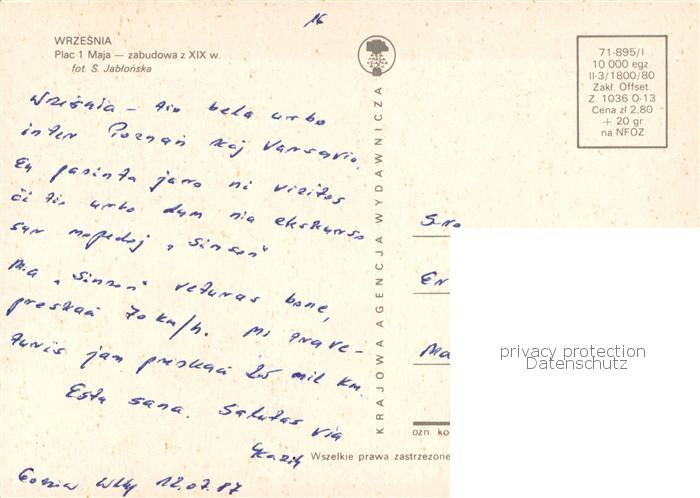 16
WRZEŚNIA
Plac 1 Maja — zabudowa z XIX w.
fot. S. Jabłońska
Września – tio bela urbo
inter Poznań kaj Varsovio.
En pasinta jaro ni vizitos
ĉi tio urbo dum nia ekskurso
sur mopedoj „Simson"
Mia „Simson" veturas bone,
preskaŭ 70 km/h. Mi trave-
turis jam preskaŭ 25 mil km.
Estu sana. Salutas via
Kazik
Wlkp 12.07.87
KRAJOWA AGENCJA WYDAWNICZA
71-895/I
10 000 egz.
II-3/1800/80
Zakł. Offset.
Z. 1036 O-13
Cena zł 2,80
+ 20 gr
na NFOZ
privacy protection
Datenschutz
ozn ko
Wszelkie prawa zastrzeżone